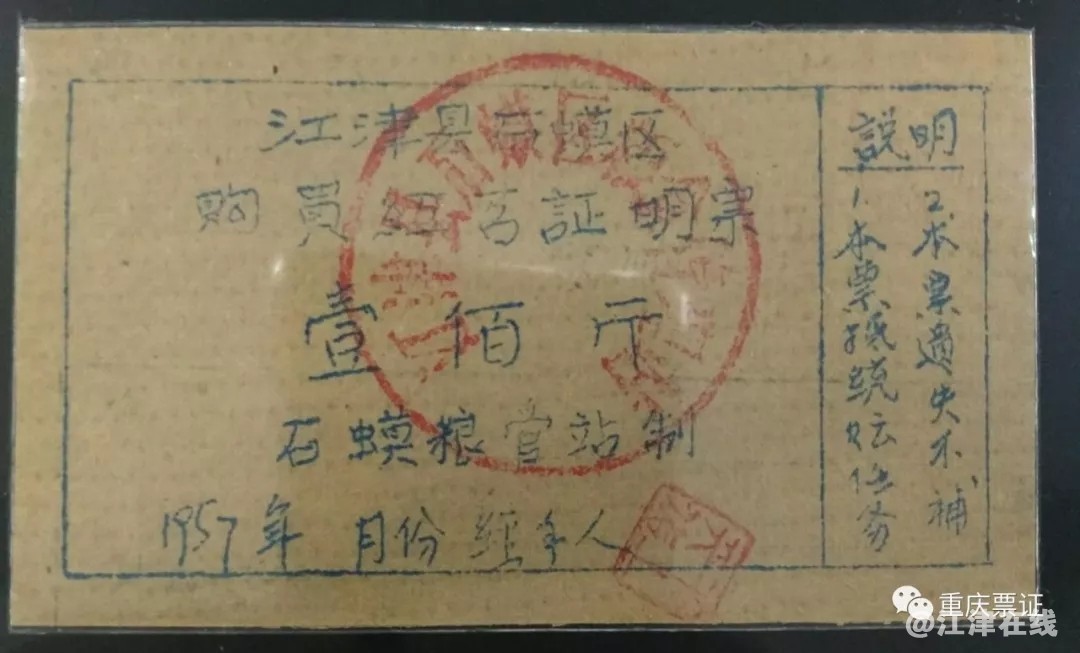 江津县石蟆区
购买红苕証明票
壹佰斤
石蟆粮管站制
1957年 月份 经手人
説明
1.本票抵统任务
2.本票遗失不补
重庆票证
@江津在线